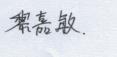 黎嘉敏.